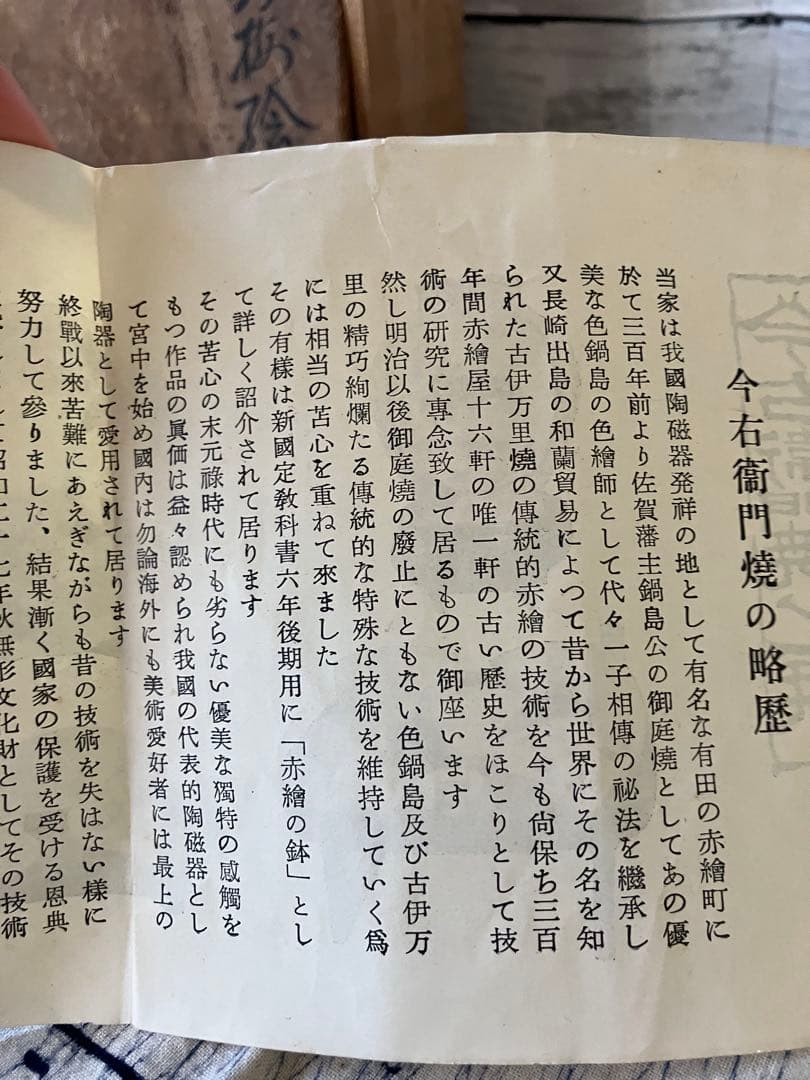 今右衞門燒の略歷
当家は我國陶磁器発祥の地として有名な有田の赤繪町に
於て三百年前より佐賀藩主鍋島公の御庭燒としてあの優
美な色鍋島の色繪師として代々一子相傳の祕法を繼承し
又長崎出島の和蘭貿易によつて昔から世界にその名を知
られた古伊万里燒の傳統的赤繪の技術を今も尙保ち三百
年間赤繪屋十六軒の唯一軒の古い歷史をほこりとして技
術の研究に專念致して居るもので御座います
然し明治以後御庭燒の廢止にともない色鍋島及び古伊万
里の精巧絢爛たる傳統的な特殊な技術を維持していく爲
には相当の苦心を重ねて來ました
その有樣は新國定敎科書六年後期用に「赤繪の鉢」とし
て詳しく詔介されて居ります
その苦心の末元祿時代にも劣らない優美な獨特の感觸を
もつ作品の眞価は益々認められ我國の代表的陶磁器とし
て宮中を始め國內は勿論海外にも美術愛好者には最上の
陶器として愛用されて居ります
終戰以來苦難にあえぎながらも昔の技術を失はない樣に
努力して參りました、結果漸く國家の保護を受ける恩典
昭和二十七年秋無形文化財としてその技術